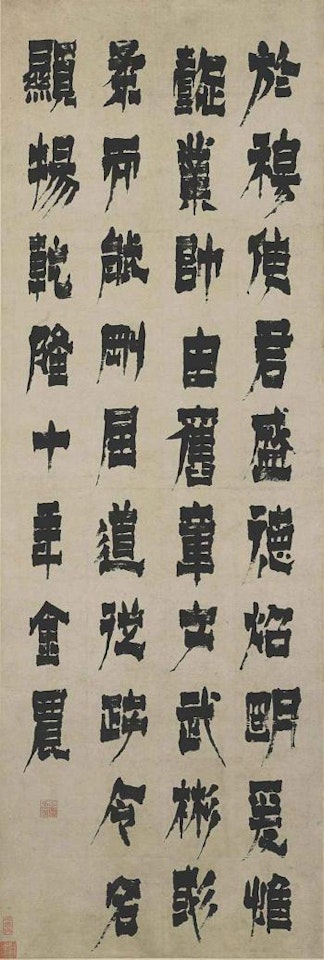 於穆使君盛德焰明爰惟
懿業帥由舊章文武彬彧
柔而能剛居道從政令名
顯揚乾隆十年金農